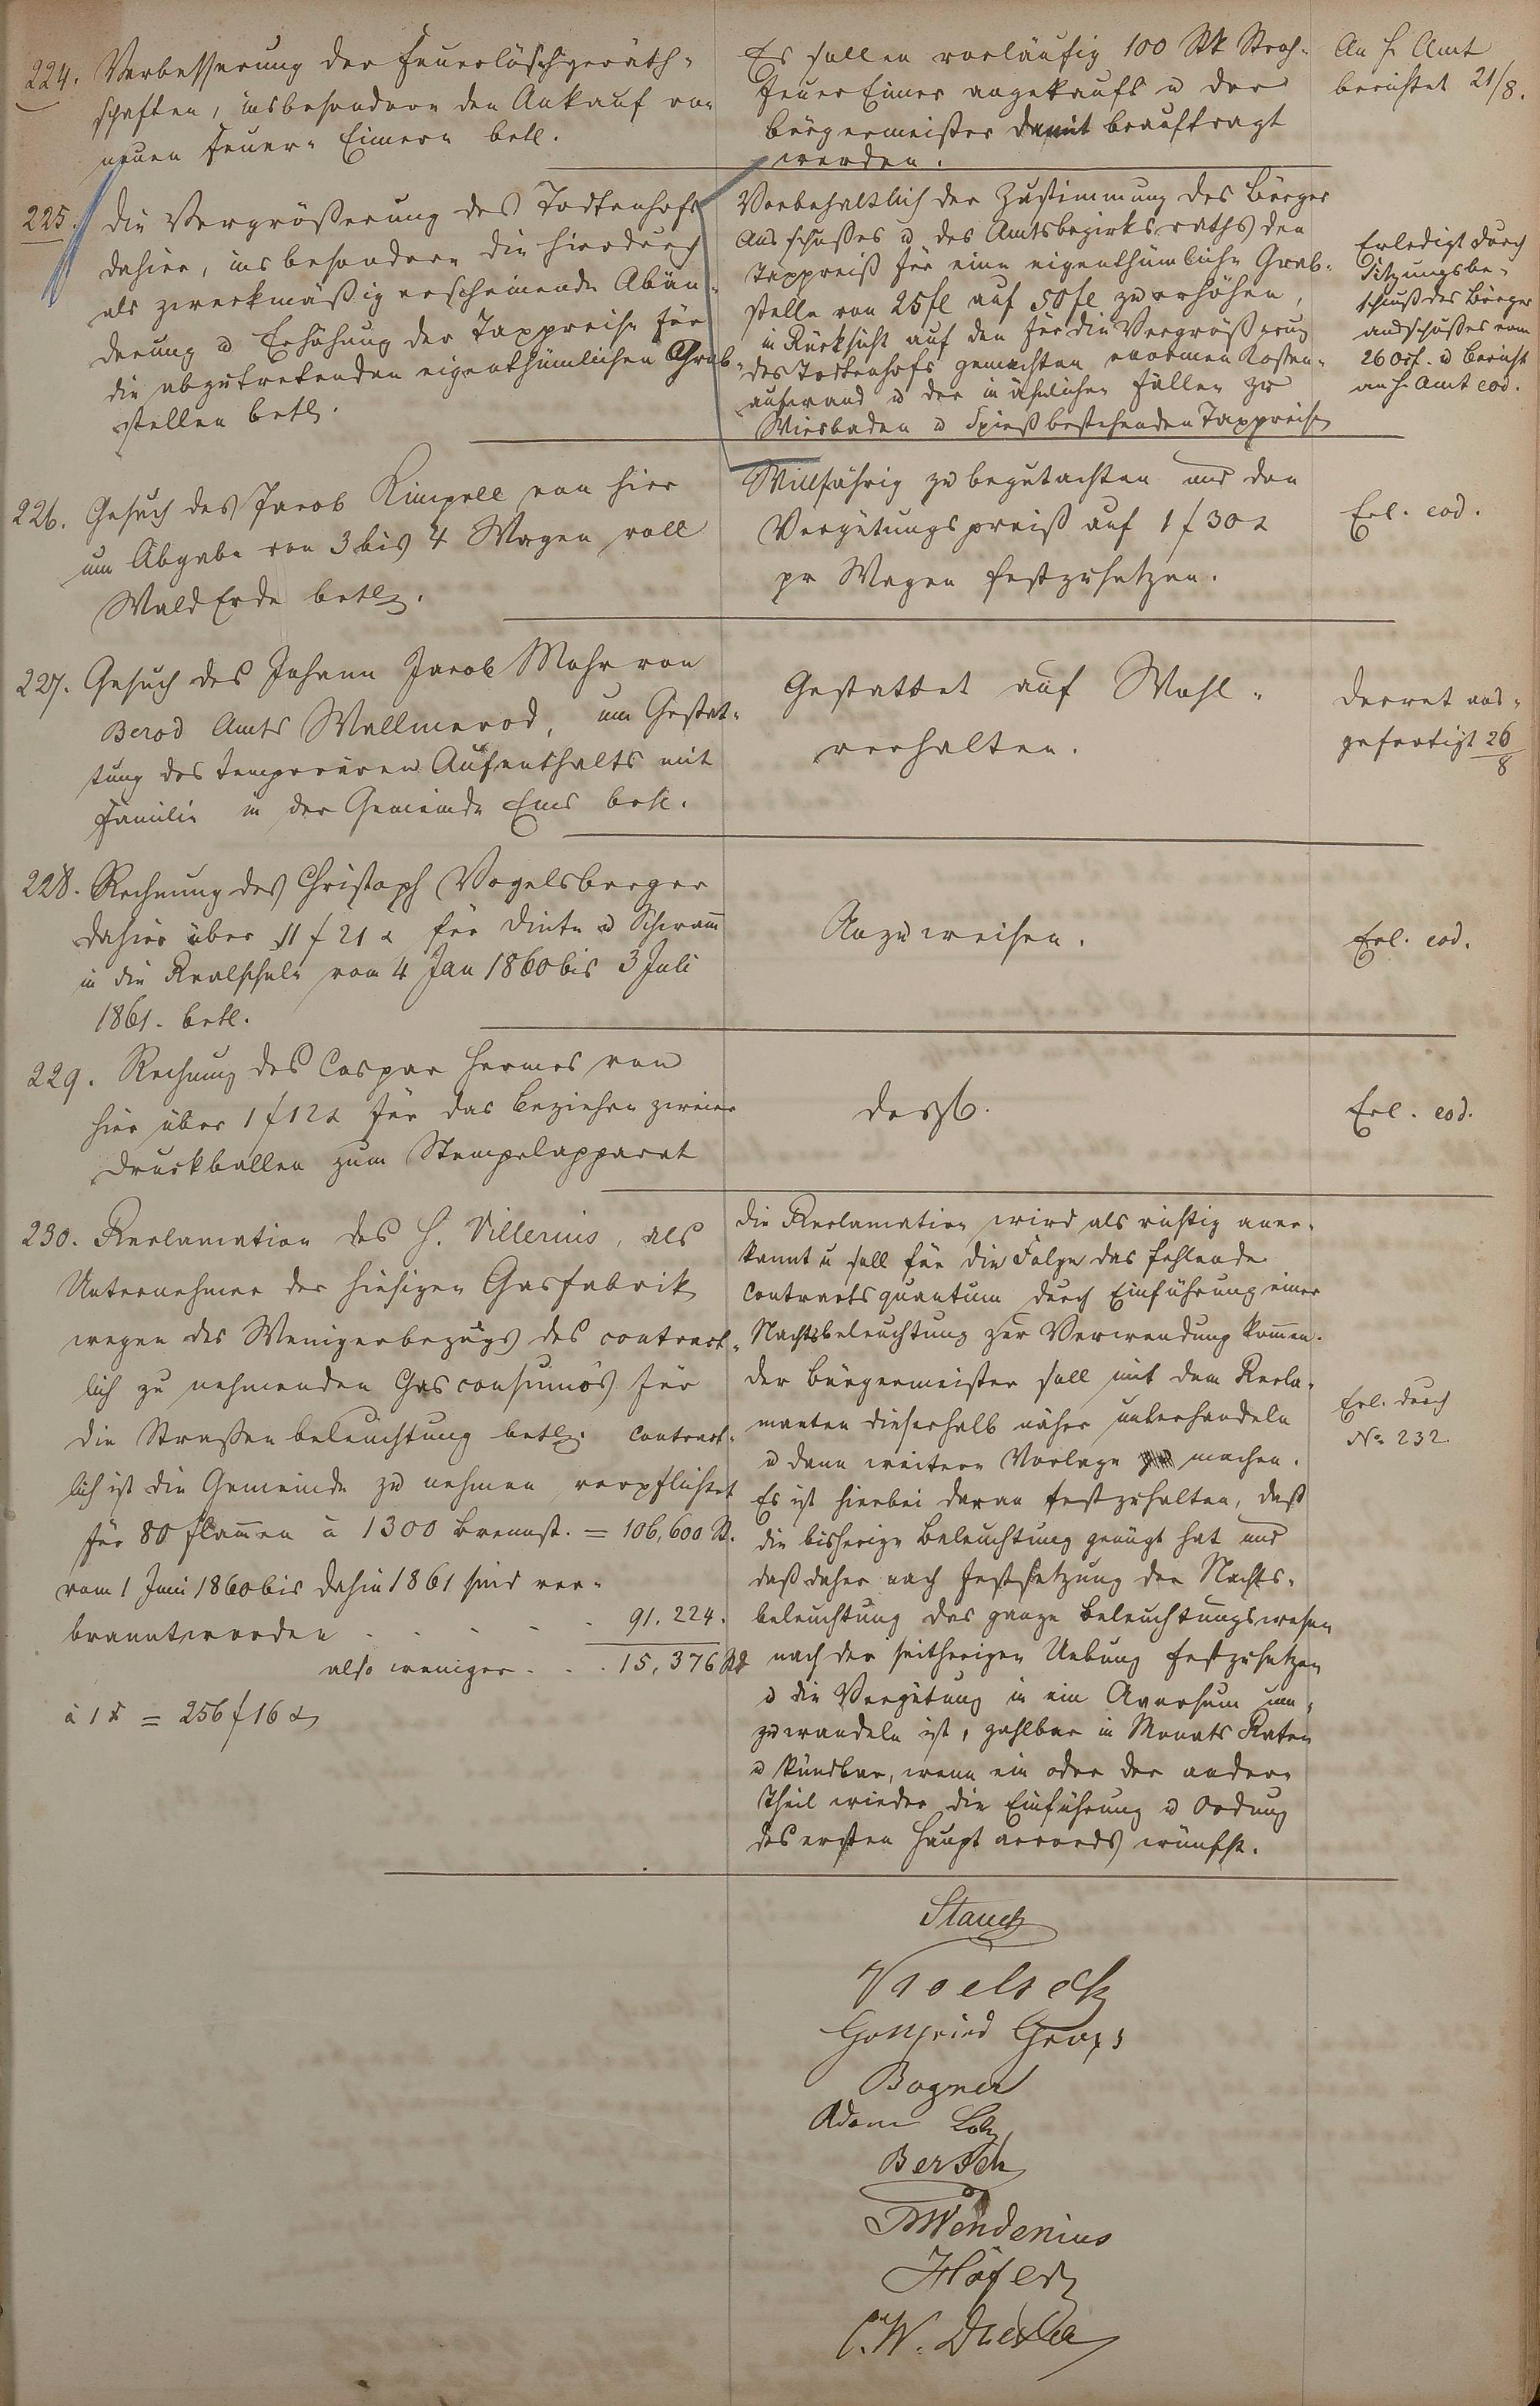 224. Verbesserung der Feuerlöschgeräth-
schaften, insbesondere den Ankauf von
neuen Feuer- Eimern betl.
Es sollen vorläufig 100 Stk Stroh-
Feuer Eimer angekauft u der
Bürgermeister damit beauftragt
werden.
An H. Amt
berichtet 21/8.
225. Die Vergrößerung des Todtenhofs
dahier, insbesondere die hierdurch
als zweckmäßig erscheinende Abän-
derung u Erhöhung der Taxpreise für
die abzutretenden eigenthümlichen Grab-
stellen betl.
Vorbehaltlich der Zustimmung des Bürger
Ausschußes u des Amtsbezirksraths den
Taxpreiß für eine eigenthümliche Grab-
stelle von 25 fl auf 50 fl zu erhöhen,
in Rücksicht auf den für die Vergrößerung
des Todtenhofs gemachten enormen Kosten-
aufwand u der in ähnlichen Fällen zu
Wiesbaden u bestehenden Taxpreise
Erledigt durch
Sitzungsbe-
schluß des Bürger
ausschußes vom
26 Oct. u Bericht
an H. Amt eod.
226. Gesuch des Jacob Kimpell von hier
um Abgabe von 3 bis 4 Wagen voll
Wald Erde betl.
Willfährig zu begutachten und den
Vergütungspreiß auf 1 f 30 x
pr Wagen festzusetzen.
Erl. eod.
227. Gesuch des Johann Jacob Mohr von
Berod Amts Wallmerod, um Gestat-
tung des temporären Aufenthalts mit
Familie in der Gemeinde Ems betl.
Gestattet auf Wohl-
verhalten.
Decret aus-
gefertigt 26/8
228. Rechnung des Christoph Vogelsberger
dahier über 11 f 21 x für Dinte u Schwam̅
in die Realschule vom 4 Jan 1860 bis 3 Juli
1861. betl.
Anzuweisen.
Erl. eod.
229. Rechnung des Caspar Hermes von
hier über 1 f 12 x für das Beziehen zweier
Druckballen zum Stempelapparat
desgl.
Erl. eod.
230. Reclamation des H. Villerius, als
Unternehmer der hiesigen Gasfabrik
wegen des Wenigerbezugs des contract-
lich zu nehmenden Gasconsumos für
die Straßenbeleuchtung betl. Contract-
lich ist die Gemeinde zu nehmen verpflichtet
für 80 Flam̅en à 1300 Brennst. = 106,600 St.
vom 1 Juni 1860 bis dahin 1861 sind ver-
brannt worden . . . . . 91.224.
also weniger . . . 15,376 Std
à 1 x = 256 f 16 x
Die Reclamation wird als richtig aner-
kannt u soll für die Folge das fehlende
Contractsquantum durch Einführung einer
Nachtsbeleuchtung zur Verwendung kom̅en.
Der Bürgermeister soll mit dem Recla-
manten dieserhalb näher unterhandeln
u dann weitere Vorlage machen.
Es ist hierbei daran festzuhalten, daß
die bisherige Beleuchtung genügt hat und
daß daher nach Festsetzung der Nachts-
beleuchtung das ganze Beleuchtungswesen
nach der seitherigen Uebung festzusetzen
u die Vergütung in ein Aversum um-
zuwandeln ist, zahlbar in Monats Raten
u kündbar, wenn ein oder der andere
Theil wieder die Einführung u Ordnung
des ersten Haupt accords wünscht.
Erl. durch
No 232.
Stauch
Gottfried
Bogner
Adam
Bersch
Wendenius
Höfer
C. W.